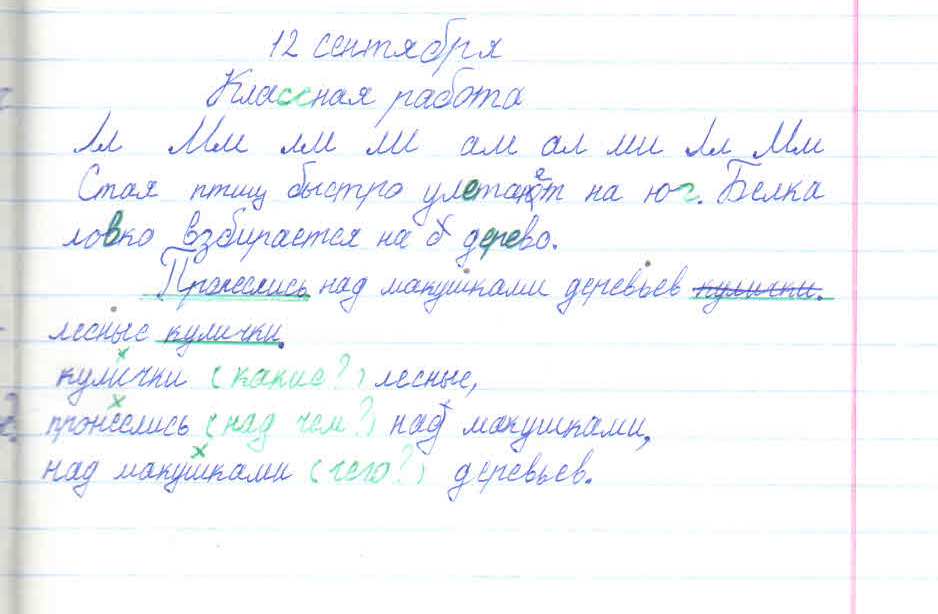 12 сентября
Классная работа
Лл Мм лм ли ам ал ми Лл Мм
Стая птиц быстро улетает на юг. Белка
ловко взбирается на дерево.
Пронеслись над макушками деревьев кулички.
лесные кулички.
кулички (какие?) лесные,
пронеслись (над чем?) над макушками,
над макушками (чего?) деревьев.